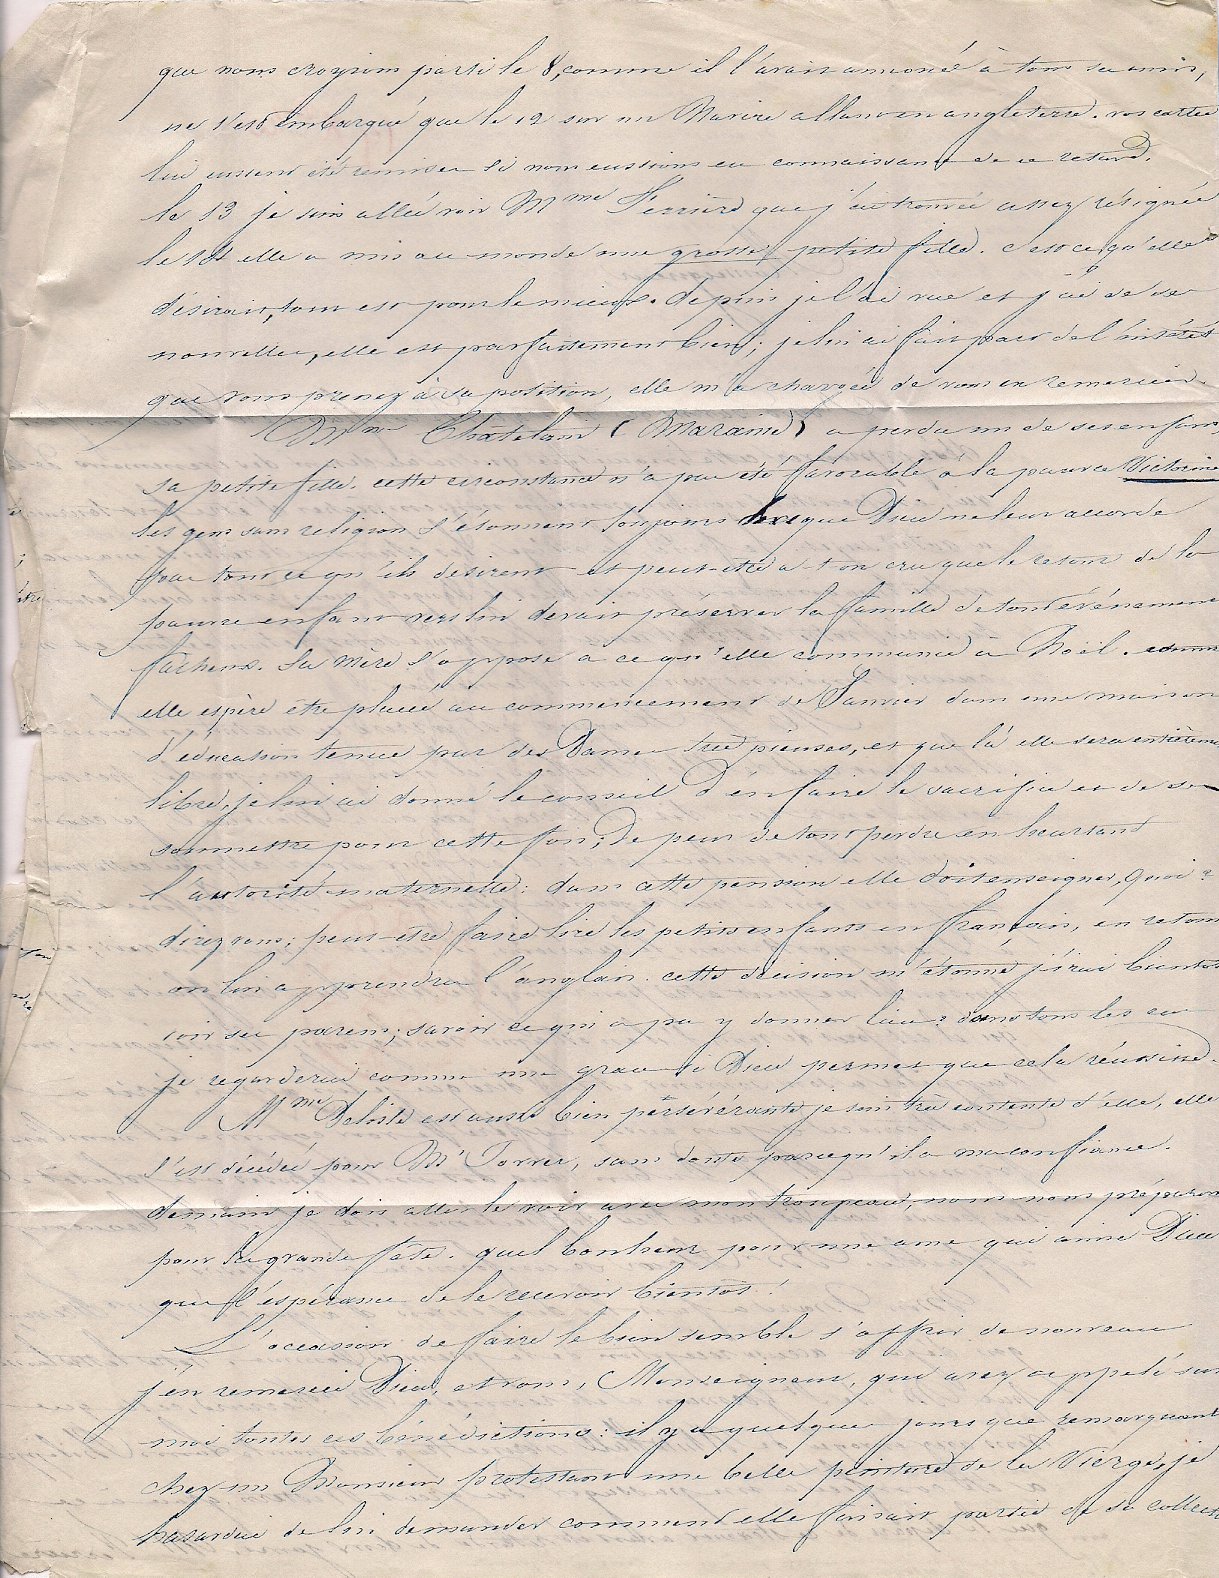 que nous croyions parti le 8, comme il l'avait annoncé à tous ses amis,
ne s'est embarqué que le 12 sur un Navire allant en angleterre. vos cartes
lui eussent été remises si nous eussions eu connaissance de ce retard.
le 13 je suis allée voir Mme Ferrière que j'ai trouvée assez résignée
le elle a mis au monde une grosse petite fille. c'est ce qu'elle
désirait, tout est pour le mieux. depuis je l'ai vue et j'ai de ses
nouvelles, elle est parfaitement bien; je lui ai fait part de l'intérêt
que vous prenez à sa position, elle m'a chargée de vous en remercier.
Mme Chatelain (Maraine) a perdu un de ses enfans,
sa petite fille. cette circonstance n'a pas été favorable à la pauvre Victorine
les gens sans religion s'étonnent toujours que Dieu ne leur accorde
pas tout ce qu'ils désirent et peut-être a-t-on cru que le retour de la
pauvre enfant vers lui devait préserver la famille de tout événement
fâcheux. Sa mère s'oppose à ce qu'elle communie à Noël. comme
elle espère être placée au commencement de Janvier dans une maison
d'éducation tenue par des Dames très pieuses, et que là elle sera entièrement
libre, je lui ai donné le conseil d'en faire le sacrifice et de se
soumettre pour cette fois, de peur de tout perdre en heurtant
l'autorité maternelle: dans cette pension elle doit enseigner, quoi?
direz vous; peut-être faire lire les petits enfants en français, en retour
on lui apprendra l'anglais. cette décision m'étonne, j'irai bientôt
voir ses parens; savoir ce qui a pu y donner lieu: dans tous les cas
je regarderai comme une grace si Dieu permet que cela réussisse.
Mme Deliste est aussi bien persévérante je suis très contente d'elle, elle
s'est décidée pour Mr Torrer, sans doute parcequ'il a ma confiance.
demain je dois aller le voir avec mon troupeau, nous nous préparons
pour la grande fête. quel bonheur pour une ame qui aime Dieu
que l'espérance de le recevoir bientôt!
L'occasion de faire le bien semble s'offrir de nouveau
j'en remercie Dieu, et vous, Monseigneur, qui avez appelé sur
moi toutes ces bénédictions: il y a quelques jours que remarquant
chez un Monsieur protestant une belle peinture de la Vierge, je
hasardai de lui demander comment elle faisait partie de sa collect